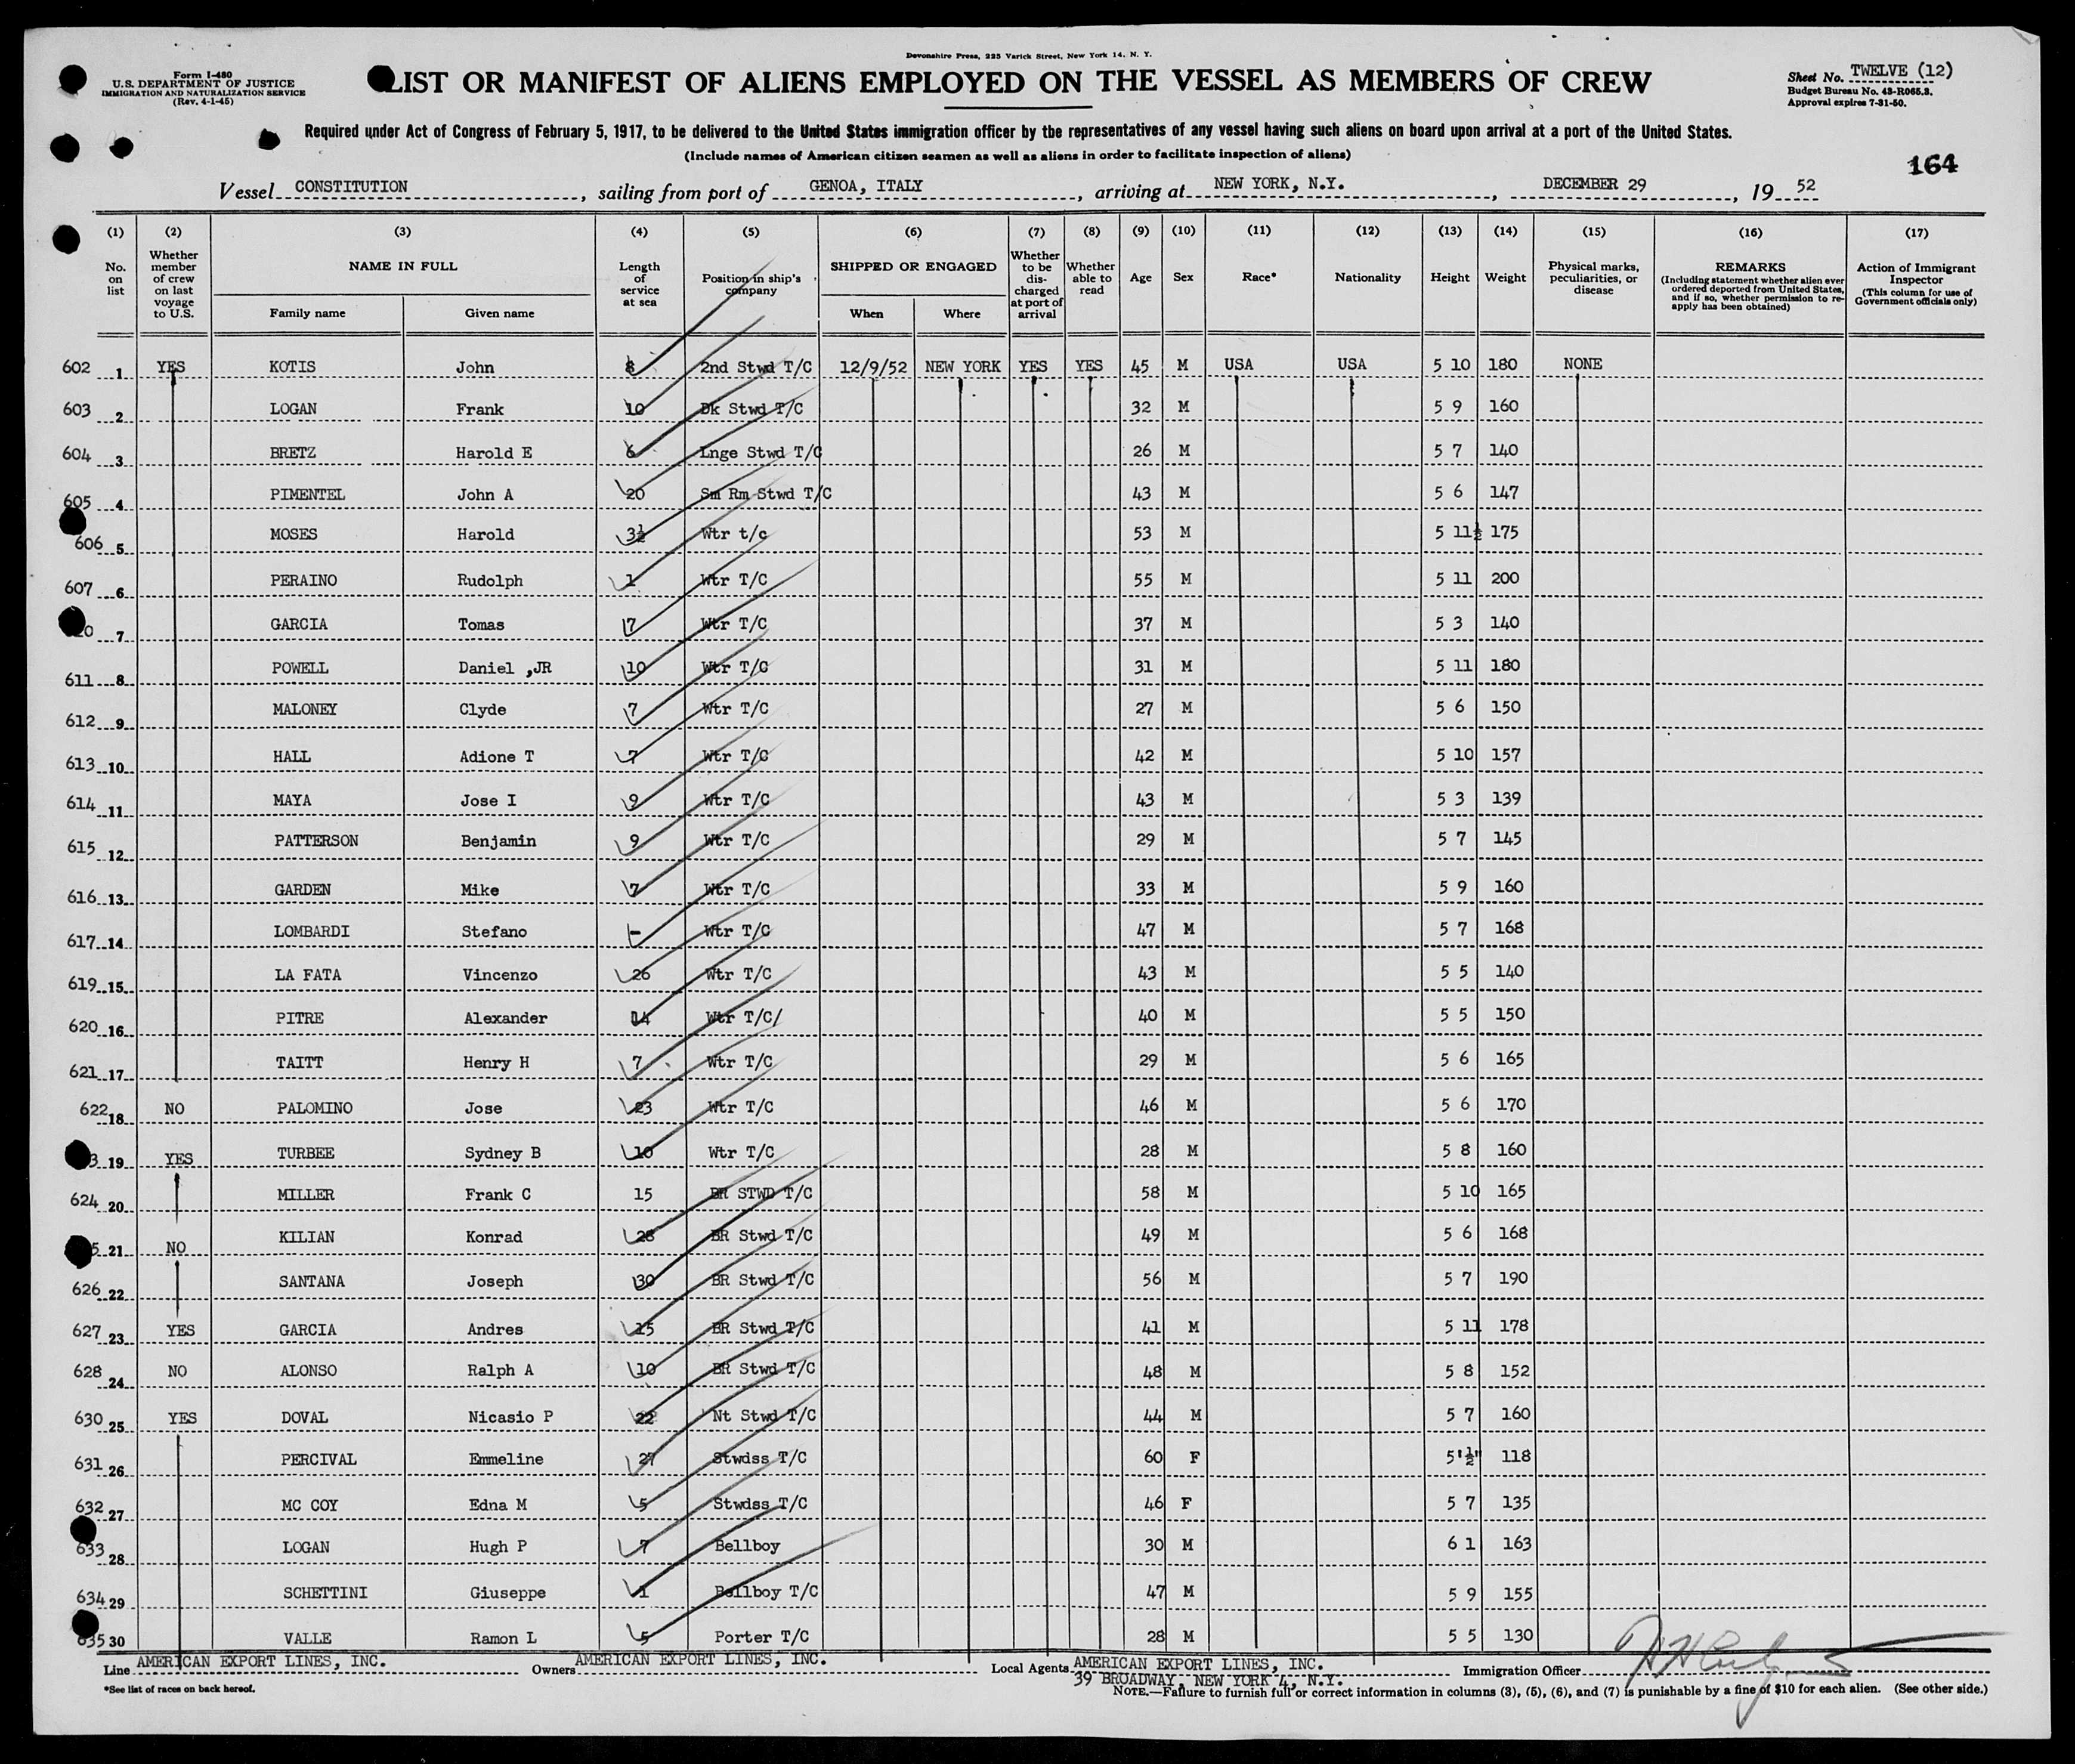 Devonshire Press, 225 Varick Street, New York 14, N. Y.
Form I-480
U.S. DEPARTMENT OF JUSTICE
IMMIGRATION AND NATURALIZATION SERVICE
(Rev. 4-1-45)
LIST OR MANIFEST OF ALIENS EMPLOYED ON THE VESSEL AS MEMBERS OF CREW
Sheet No. TWELVE (12)
Budget Bureau No. 43-R065.3.
Approval expires 7-31-50.
Required under Act of Congress of February 5, 1917, to be delivered to the United States immigration officer by the representatives of any vessel having such aliens on board upon arrival at a port of the United States.
(Include names of American citizen seamen as well as aliens in order to facilitate inspection of aliens)
164
Vessel CONSTITUTION, sailing from port of GENOA, ITALY, arriving at NEW YORK, N.Y., DECEMBER 29, 19 52
(1) (2) (3) (4) (5) (6) (7) (8) (9) (10) (11) (12) (13) (14) (15) (16) (17)
No. on list
Whether member of crew on last voyage to U.S.
NAME IN FULL
Family name Given name
Length of service at sea
Position in ship's company
SHIPPED OR ENGAGED
When Where
Whether to be discharged at port of arrival
Whether able to read
Age
Sex
Race*
Nationality
Height
Weight
Physical marks, peculiarities, or disease
REMARKS
(Including statement whether alien ever ordered deported from United States, and if so, whether permission to reapply has been obtained)
Action of Immigrant Inspector
(This column for use of Government officials only)
602 1 YES KOTIS John 8 2nd Stwd T/C 12/9/52 NEW YORK YES YES 45 M USA USA 5 10 180 NONE
603 2 LOGAN Frank 10 Dk Stwd T/C 32 M 5 9 160
604 3 BRETZ Harold E 6 Lnge Stwd T/C 26 M 5 7 140
605 4 PIMENTEL John A 20 Sm Rm Stwd T/C 43 M 5 6 147
606 5 MOSES Harold 3½ Wtr t/c 53 M 5 11½ 175
607 6 PERAINO Rudolph 1 Wtr T/C 55 M 5 11 200
7 GARCIA Tomas 17 Wtr T/C 37 M 5 3 140
611 8 POWELL Daniel ,JR 10 Wtr T/C 31 M 5 11 180
612 9 MALONEY Clyde 7 Wtr T/C 27 M 5 6 150
613 10 HALL Adione T 7 Wtr T/C 42 M 5 10 157
614 11 MAYA Jose I 9 Wtr T/C 43 M 5 3 139
615 12 PATTERSON Benjamin 9 Wtr T/C 29 M 5 7 145
616 13 GARDEN Mike 7 Wtr T/C 33 M 5 9 160
617 14 LOMBARDI Stefano - Wtr T/C 47 M 5 7 168
619 15 LA FATA Vincenzo 26 Wtr T/C 43 M 5 5 140
620 16 PITRE Alexander 14 Wtr T/C/ 40 M 5 5 150
621 17 TAITT Henry H 7 Wtr T/C 29 M 5 6 165
622 18 NO PALOMINO Jose 23 Wtr T/C 46 M 5 6 170
3 19 YES TURBEE Sydney B 10 Wtr T/C 28 M 5 8 160
624 20 MILLER Frank C 15 BR STWD T/C 58 M 5 10 165
5 21 NO KILIAN Konrad 28 BR Stwd T/C 49 M 5 6 168
626 22 SANTANA Joseph 30 BR Stwd T/C 56 M 5 7 190
627 23 YES GARCIA Andres 15 BR Stwd T/C 41 M 5 11 178
628 24 NO ALONSO Ralph A 10 BR Stwd T/C 48 M 5 8 152
630 25 YES DOVAL Nicasio P 22 Nt Stwd T/C 44 M 5 7 160
631 26 PERCIVAL Emmeline 27 Stwdss T/C 60 F 5'½" 118
632 27 MC COY Edna M 5 Stwdss T/C 46 F 5 7 135
633 28 LOGAN Hugh P 7 Bellboy 30 M 6 1 163
634 29 SCHETTINI Giuseppe 1 Bellboy T/C 47 M 5 9 155
635 30 VALLE Ramon L 5 Porter T/C 28 M 5 5 130
Line AMERICAN EXPORT LINES, INC. Owners AMERICAN EXPORT LINES, INC. Local Agents AMERICAN EXPORT LINES, INC. Immigration Officer
39 BROADWAY, NEW YORK 4, N.Y.
*See list of races on back hereof.
NOTE.—Failure to furnish full or correct information in columns (3), (5), (6), and (7) is punishable by a fine of $10 for each alien. (See other side.)